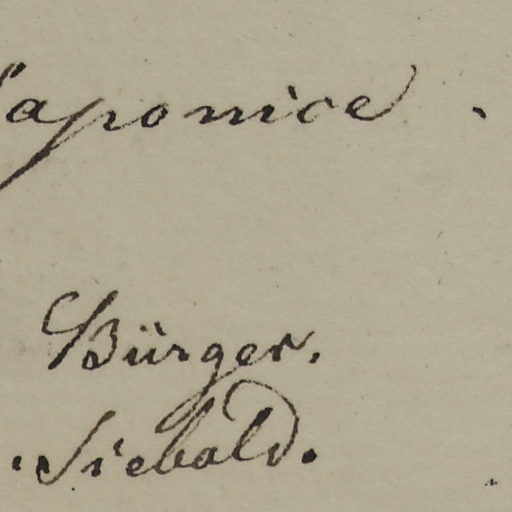 Japonice.
Bürger.
Siebold.